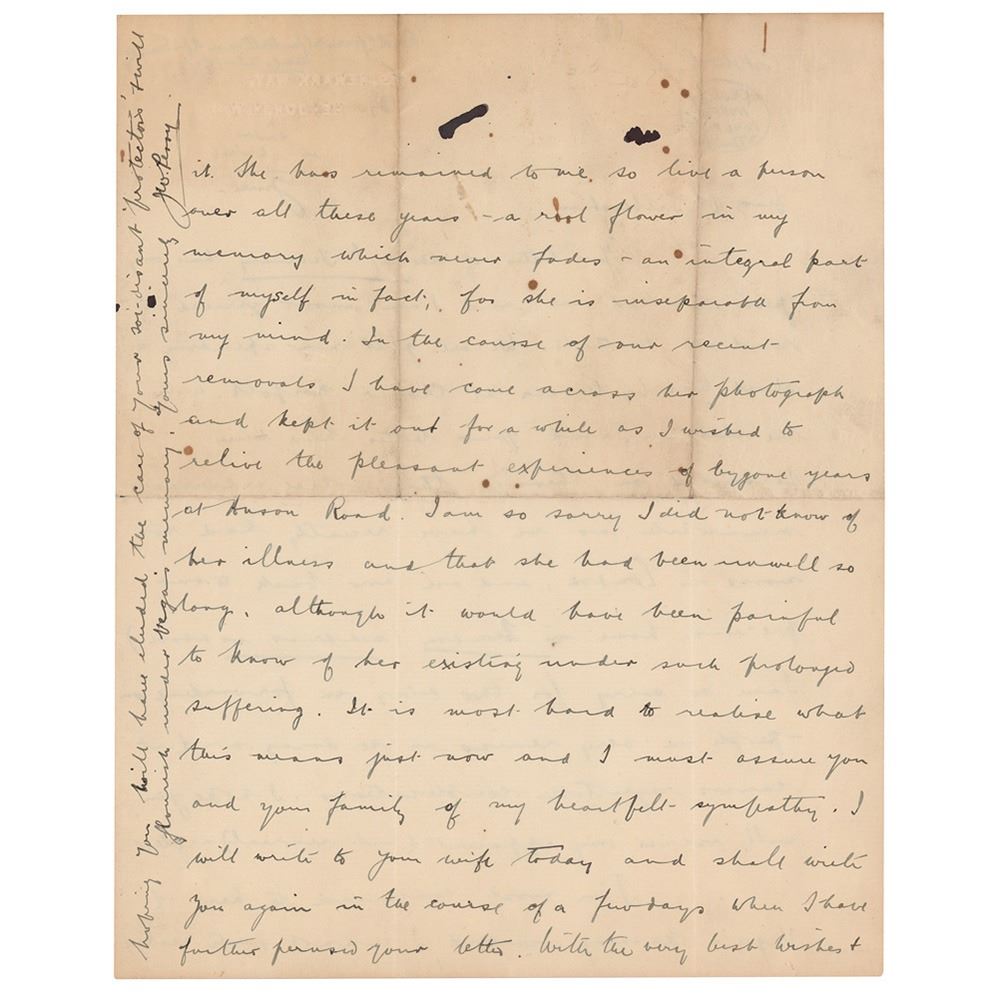 it. She has remained to me so live a person
over all these years - a real flower in my
memory which never fades - an integral part
of myself in fact, for she is inseparable from
my mind. In the course of our recent
removals I have come across her photograph
and kept it out for a while as I wished to
relive the pleasant experiences of bygone years
at Anson Road. I am so sorry I did not know of
her illness and that she had been unwell so
long, although it would have been painful
to know of her existing under such prolonged
suffering. It is most hard to realise what
this means just now and I must assure you
and your family of my heartfelt sympathy. I
will write to your wife today and shall write
you again in the course of a few days when I have
further perused your letter. With the very best wishes &
hoping you will have eluded the care of your 'soi-disant protectors' & will
flourish under Vega's memory. Yours sincerely